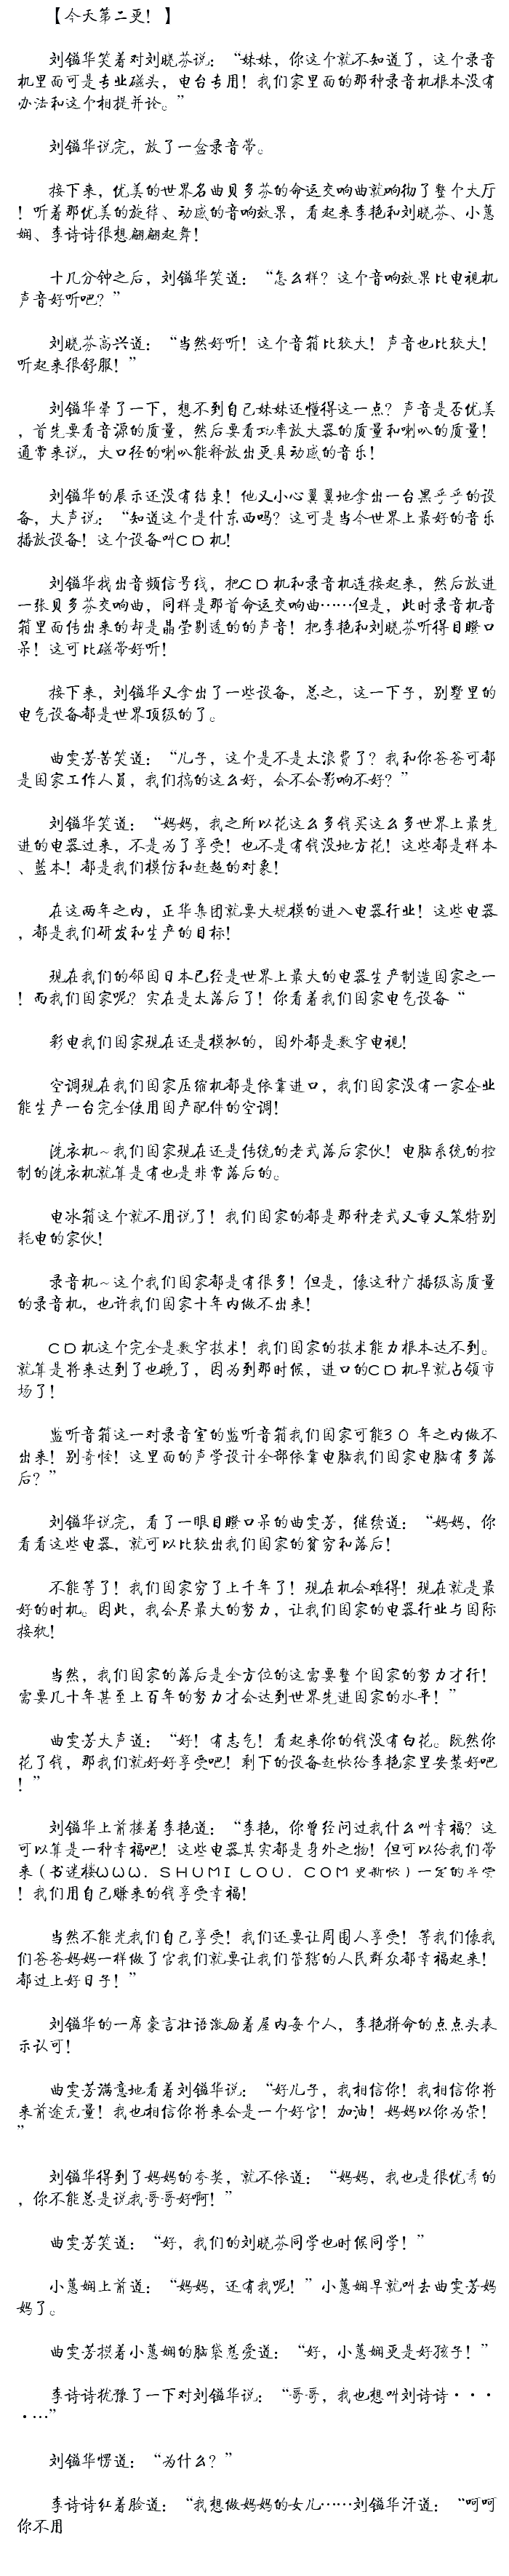 【今天第二更！】
刘镒华笑着对刘晓芬说：“妹妹，你这个就不知道了，这个录音
机里面可是专业磁头，电台专用！我们家里面的那种录音机根本没有
办法和这个相提并论。”
刘镒华说完，放了一盒录音带。
接下来，优美的世界名曲贝多芬的命运交响曲就响彻了整个大厅
！听着那优美的旋律、动感的音响效果，看起来李艳和刘晓芬、小蕙
娴、李诗诗很想翩翩起舞！
十几分钟之后，刘镒华笑道：“怎么样？这个音响效果比电视机
声音好听吧？”
刘晓芬高兴道：“当然好听！这个音箱比较大！声音也比较大！
听起来很舒服！”
刘镒华晕了一下，想不到自己妹妹还懂得这一点？声音是否优美
，首先要看音源的质量，然后要看功率放大器的质量和喇叭的质量！
通常来说，大口径的喇叭能释放出更具动感的音乐！
刘镒华的展示还没有结束！他又小心翼翼地拿出一台黑乎乎的设
备，大声说：“知道这个是什东西吗？这可是当今世界上最好的音乐
播放设备！这个设备叫CD机！
刘镒华找出音频信号线，把CD机和录音机连接起来，然后放进
一张贝多芬交响曲，同样是那首命运交响曲……但是，此时录音机音
箱里面传出来的却是晶莹剔透的的声音！把李艳和刘晓芬听得目瞪口
呆！这可比磁带好听！
接下来，刘镒华又拿出了一些设备，总之，这一下子，别墅里的
电气设备都是世界顶级的了。
曲雯芳苦笑道：“儿子，这个是不是太浪费了？我和你爸爸可都
是国家工作人员，我们搞的这么好，会不会影响不好？”
刘镒华笑道：“妈妈，我之所以花这么多钱买这么多世界上最先
进的电器过来，不是为了享受！也不是有钱没地方花！这些都是样本
、蓝本！都是我们模仿和赶超的对象！
在这两年之内，正华集团就要大规模的进入电器行业！这些电器
，都是我们研发和生产的目标！
现在我们的邻国日本已经是世界上最大的电器生产制造国家之一
！而我们国家呢？实在是太落后了！你看着我们国家电气设备“
彩电我们国家现在还是模拟的，国外都是数字电视！
空调现在我们国家压缩机都是依靠进口，我们国家没有一家企业
能生产一台完全使用国产配件的空调！
洗衣机～我们国家现在还是传统的老式落后家伙！电脑系统的控
制的洗衣机就算是有也是非常落后的。
电冰箱这个就不用说了！我们国家的都是那种老式又重又笨特别
耗电的家伙！
录音机～这个我们国家都是有很多！但是，像这种广播级高质量
的录音机，也许我们国家十年内做不出来！
CD机这个完全是数字技术！我们国家的技术能力根本达不到。
就算是将来达到了也晚了，因为到那时候，进口的CD机早就占领市
场了！
监听音箱这一对录音室的监听音箱我们国家可能30年之内做不
出来！别奇怪！这里面的声学设计全部依靠电脑我们国家电脑有多落
后？”
刘镒华说完，看了一眼目瞪口呆的曲雯芳，继续道：“妈妈，你
看看这些电器，就可以比较出我们国家的贫穷和落后！
不能等了！我们国家穷了上千年了！现在机会难得！现在就是最
好的时机。因此，我会尽最大的努力，让我们国家的电器行业与国际
接轨！
当然，我们国家的落后是全方位的这需要整个国家的努力才行！
需要几十年甚至上百年的努力才会达到世界先进国家的水平！”
曲雯芳大声道：“好！有志气！看起来你的钱没有白花。既然你
花了钱，那我们就好好享受吧！剩下的设备赶快给李艳家里安装好吧
！”
刘镒华上前搂着李艳道：“李艳，你曾经问过我什么叫幸福？这
可以算是一种幸福吧！这些电器其实都是身外之物！但可以给我们带
来（书迷楼WWW．SHUMILOU．COM更新快）一定的享受
！我们用自己赚来的钱享受幸福！
当然不能光我们自己享受！我们还要让周围人享受！等我们像我
们爸爸妈妈一样做了官我们就要让我们管辖的人民群众都幸福起来！
都过上好日子！”
刘镒华的一席豪言壮语激励着屋内每个人，李艳拼命的点点头表
示认可！
曲雯芳满意地看着刘镒华说：“好儿子，我相信你！我相信你将
来前途无量！我也相信你将来会是一个好官！加油！妈妈以你为荣！
”
刘镒华得到了妈妈的夸奖，就不依道：“妈妈，我也是很优秀的
，你不能总是说我哥哥好啊！”
曲雯芳笑道：“好，我们的刘晓芬同学也时候同学！”
小蕙娴上前道：“妈妈，还有我呢！”小蕙娴早就叫去曲雯芳妈
妈了。
曲雯芳摸着小蕙娴的脑袋慈爱道：“好，小蕙娴更是好孩子！”
李诗诗犹豫了一下对刘镒华说：“哥哥，我也想叫刘诗诗・・・
・…”
刘镒华愣道：“为什么？”
李诗诗红着脸道：“我想做妈妈的女儿……刘镒华汗道：“呵呵
你不用